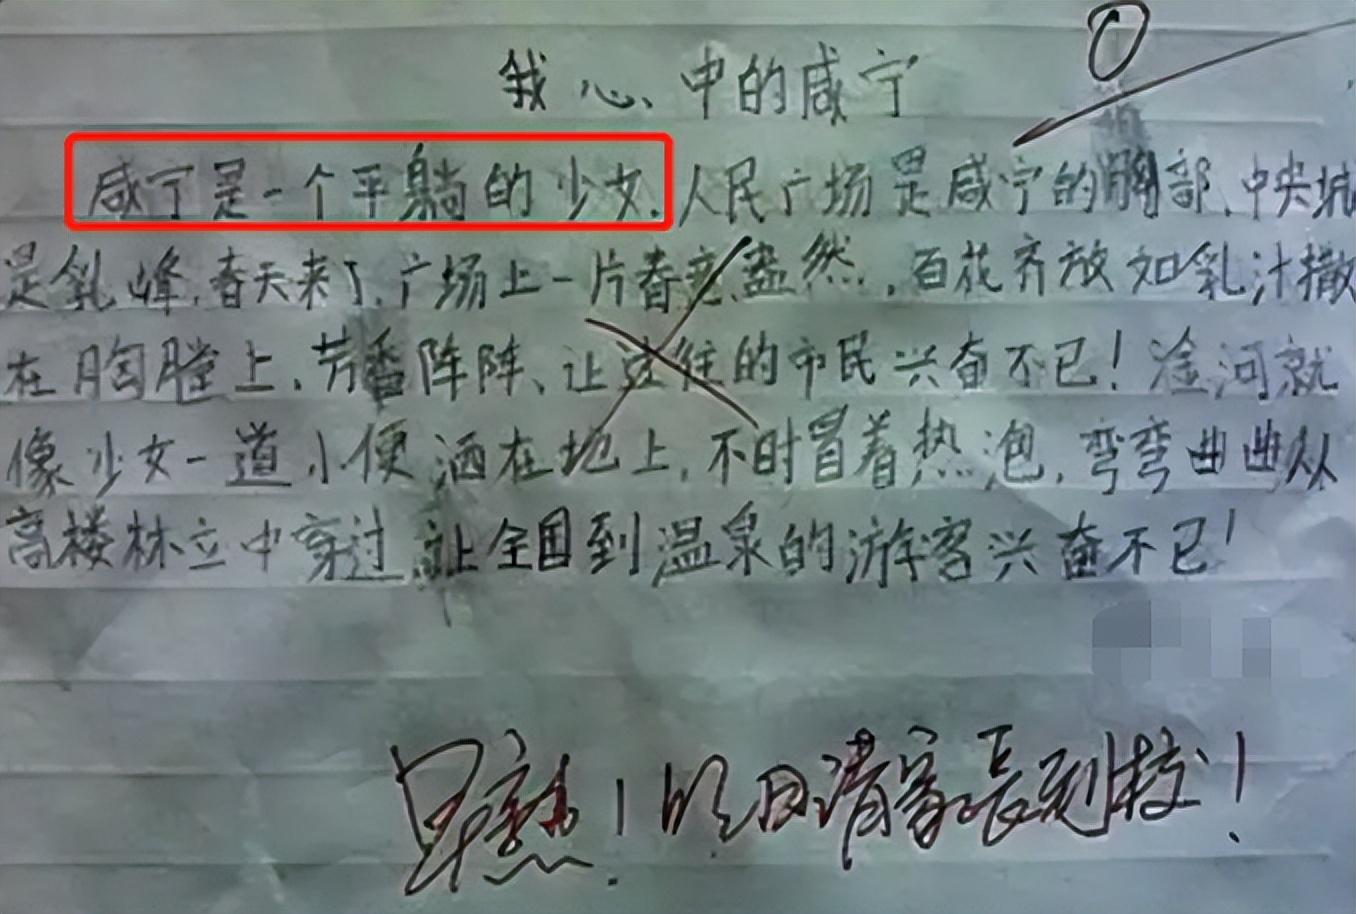 0
我心中的咸宁
咸宁是一个平躺的少女,人民广场是咸宁的胸部,中央城
是乳峰,春天来了,广场上一片春意盎然,百花齐放如乳汁撒
在胸膛上,芳香阵阵、让过往的市民兴奋不已!淦河就
像少女一道小便洒在地上,不时冒着热泡,弯弯曲曲从
高楼林立中穿过,让全国到温泉的游客兴奋不已!
早熟!明日请家长到校!